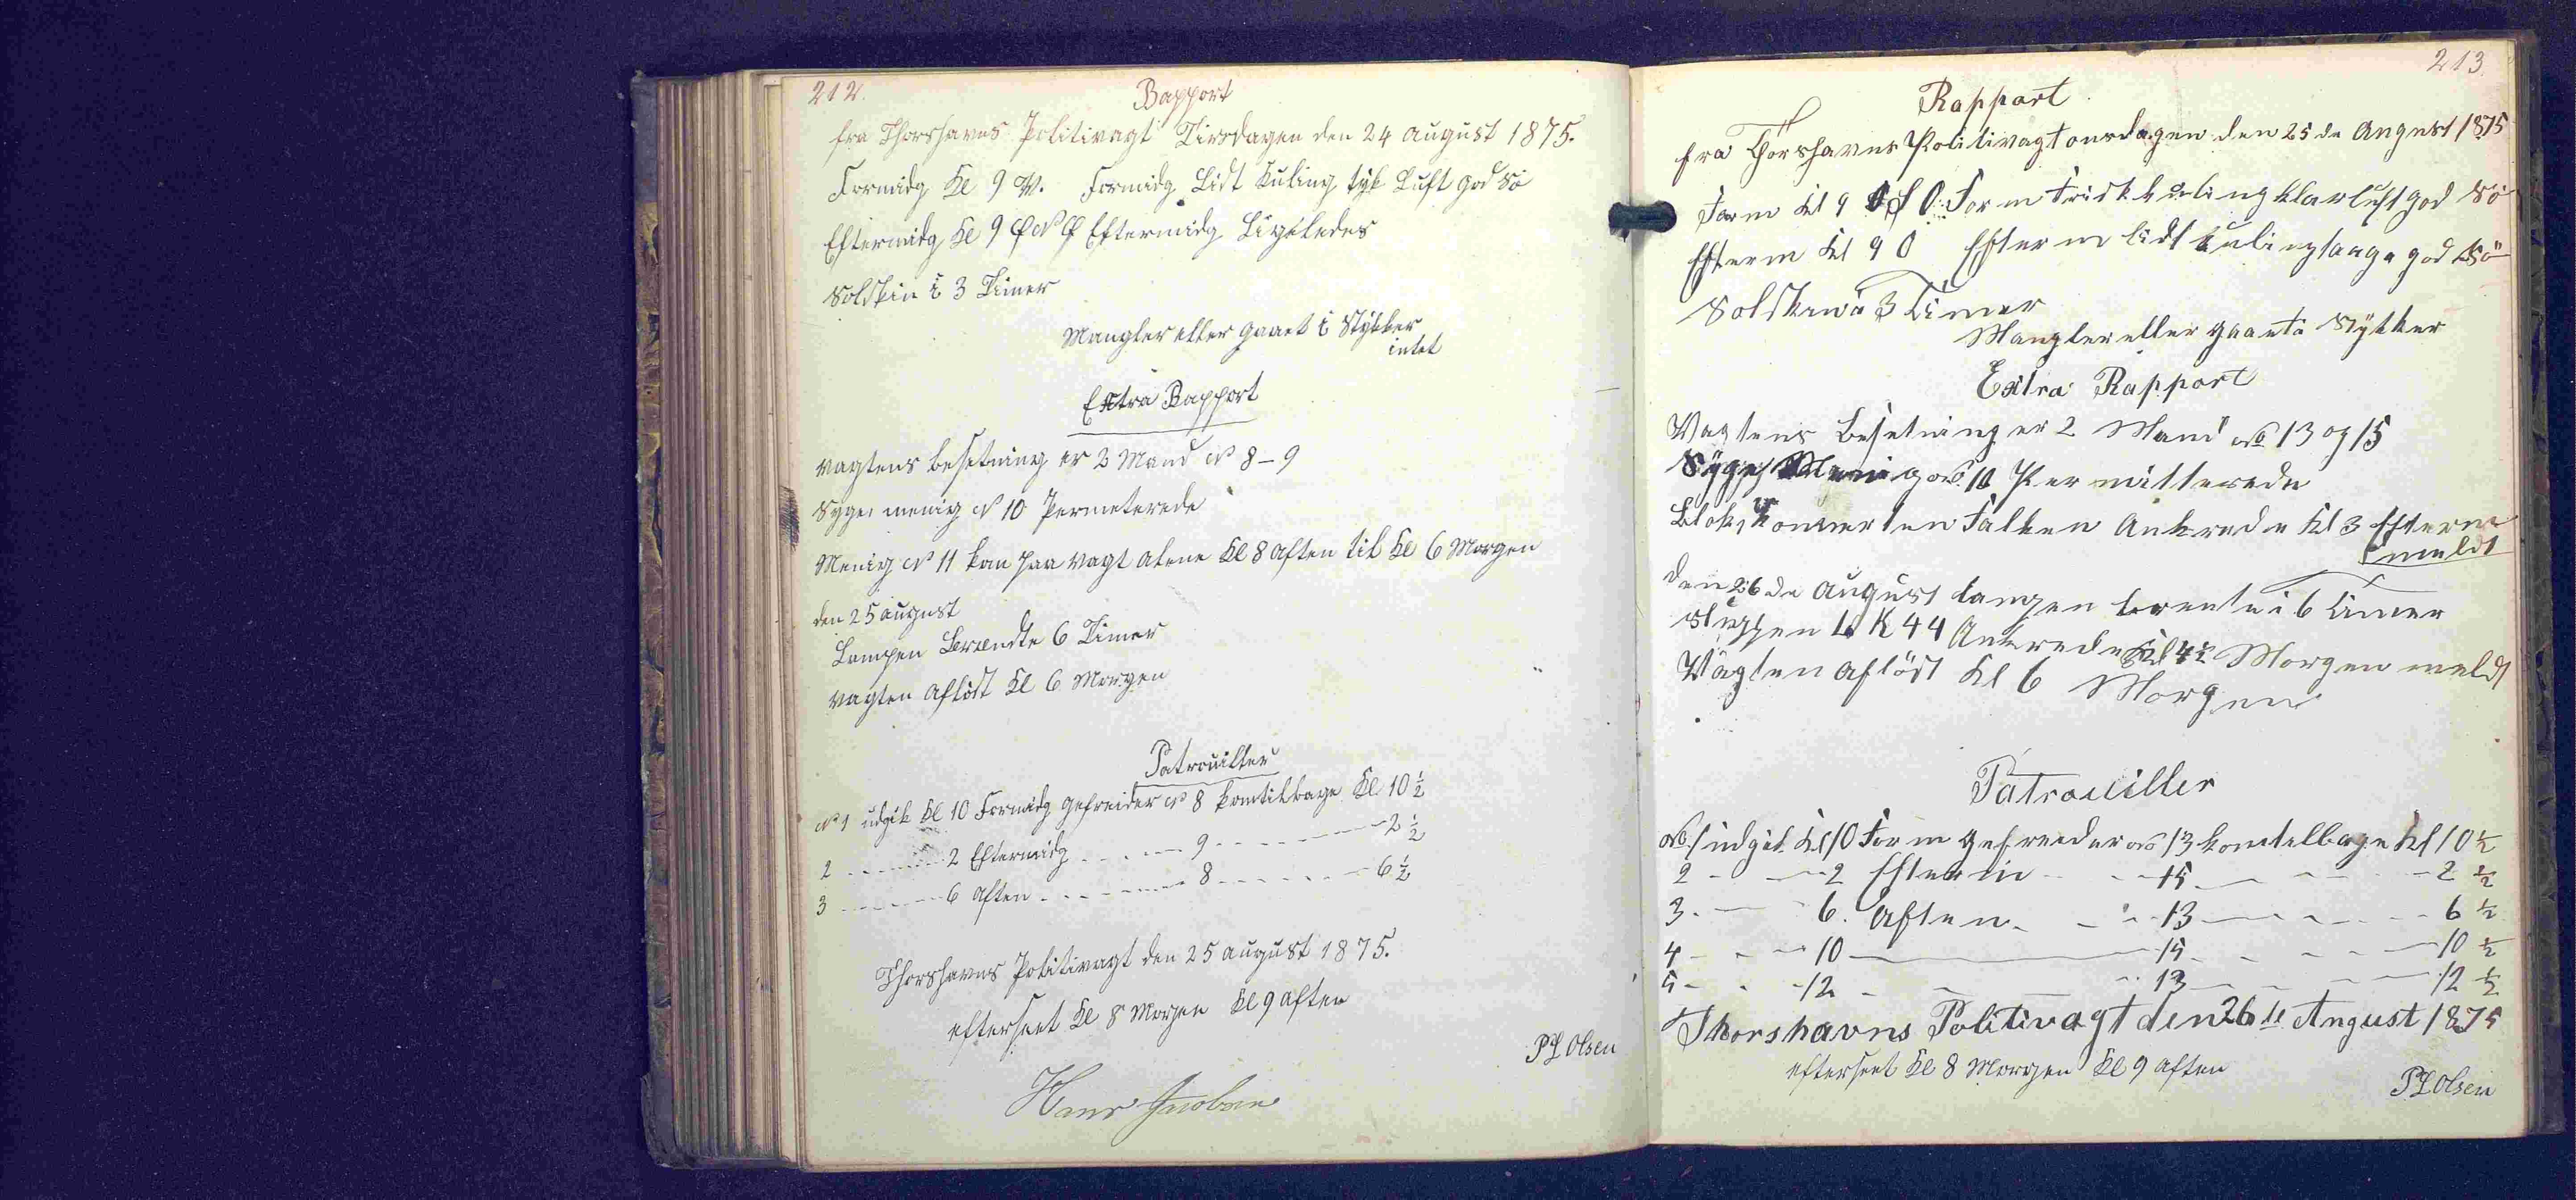 212.
Rapport
fra Thorshavns Politivagt Tirsdagen den 24 August 1875.
Formidg Kl 9 V. Formidg Lidt Kuling tyk Luft god Sö
Eftermidg Kl 9 Eftermidg Ligeledes
Solskin i 3 Timer
Mangler eller gaaet i Stykker
intet
Extra Rapport
Vagtens besetning er 2 Mand No 8-9
Syge: menig No 10 Permeterede
Menig No 11 kom paa vagt alene Kl 8 Aften til Kl 6 Morgen
den 25 August
Lampen Brændte 6 Timer
Vagten Aflöst Kl 6 Morgen
Patrouiller
No 1 udgik Kl 10 Formidg gefreider No 8 komtilbage Kl 10 1/2
2 2 Eftermidg 9 2 1/2
3 6 Aften 8 6 1/2
Thorshavns Politivagt den 25 August 1875.
efterseet Kl 8 Morgen Kl 9 Aften
PL Olsen
Hans Jacobsen
213.
Rapport
fra Thorshavns Politivagt onsdagen den 25 de August 1875
Form Kl 9 O Form Frisk kuling klar luft god Sö
Efterm Kl 9 O Efterm lidt kuling taage god Sö
Solskin i 3 Timer
Mangler eller gaaet i Stykker
Extra Rapport
Vagtens Besetning er 2 Mand No 13 og 15
Syge Menig No 10 Permitterede
Falken Ankrede Kl 3 Efterm
meldt
den 26 de August Lampen brente i 6 Timer
Sluppen K 44 Ankrede Kl 4 1/2 Morgen meldt
Vagten aflöst Kl 6 Morgen
Patrouiller
No 1 udgik Kl 10 Form gefreider No 13 komtilbage Kl 10 1/2
2 2 Efterm 15 2 1/2
3 6 Aften 13 6 1/2
4 10 15 10 1/2
5 12 13 12 1/2
Thorshavns Politivagt den 26 de August 1875
efterseet Kl 8 Morgen Kl 9 Aften
PL Olsen